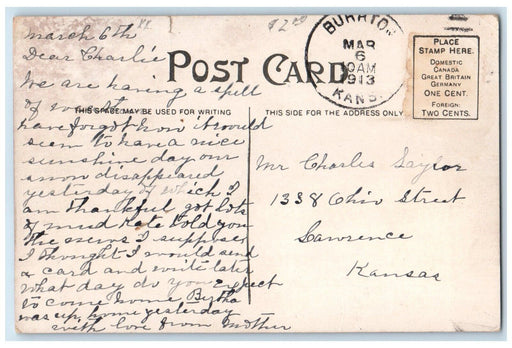 March 6th
$2.00
BURRTON
MAR
6
10AM
1913
KANS.
PLACE
STAMP HERE.
DOMESTIC
CANADA
GREAT BRITAIN
GERMANY
ONE CENT.
FOREIGN:
TWO CENTS.
POST CARD
THIS SPACE MAY BE USED FOR WRITING
THIS SIDE FOR THE ADDRESS ONLY
Dear Charlie
We are having a spell
of
have forgot how it would
seem to have a nice
sunshine day our
snow disappeared
yesterday of which I
am thankful got lots
of mud Kate told you
the news I suppose
I thought I would send
a card and write later
what day do you expect
to come home Bertha
was up home yesterday
with love from Mother
Mr Charles Saylor
1338 Ohio Street
Lawrence
Kansas